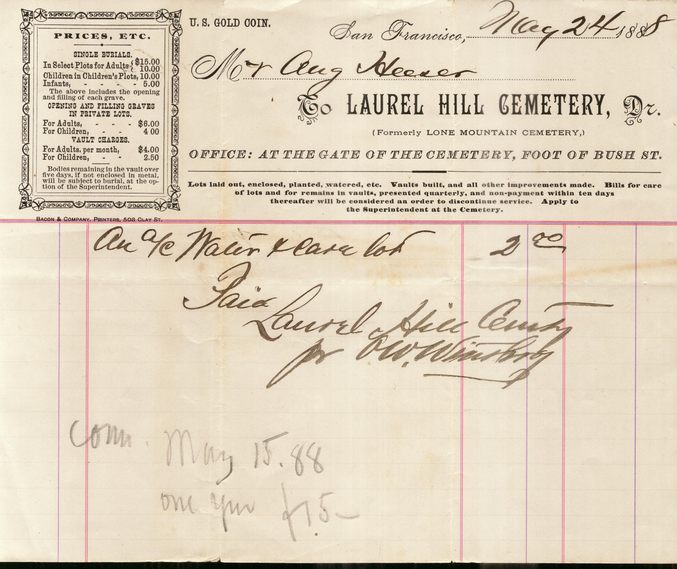 PRICES, ETC.
SINGLE BURIALS.
In Select Plots for Adults { $15.00
10.00
Children in Children's Plots, 10.00
Infants, - - - - 5.00
The above includes the opening
and filling of each grave.
OPENING AND FILLING GRAVES
IN PRIVATE LOTS.
For Adults, - - - $6.00
For Children, - - - 4 00
VAULT CHARGES.
For Adults, per month, $4.00
For Children, - - 2.50
Bodies remaining in the vault over
five days, if not enclosed in metal,
will be subject to burial, at the op-
tion of the Superintendent.
BACON & COMPANY, PRINTERS, 508 CLAY ST.
U. S. GOLD COIN.
San Francisco, May 24 1888
Mr Aug Heeser
To LAUREL HILL CEMETERY, Dr.
(Formerly LONE MOUNTAIN CEMETERY,)
OFFICE: AT THE GATE OF THE CEMETERY, FOOT OF BUSH ST.
Lots laid out, enclosed, planted, watered, etc. Vaults built, and all other improvements made. Bills for care
of lots and for remains in vaults, presented quarterly, and non-payment within ten days
thereafter will be considered an order to discontinue service. Apply to
the Superintendent at the Cemetery.
On a/c Water & care lot 2 00
Paid
Laurel Hill Cemty
pr O.W.
Com. May 15. 88
one year $15-